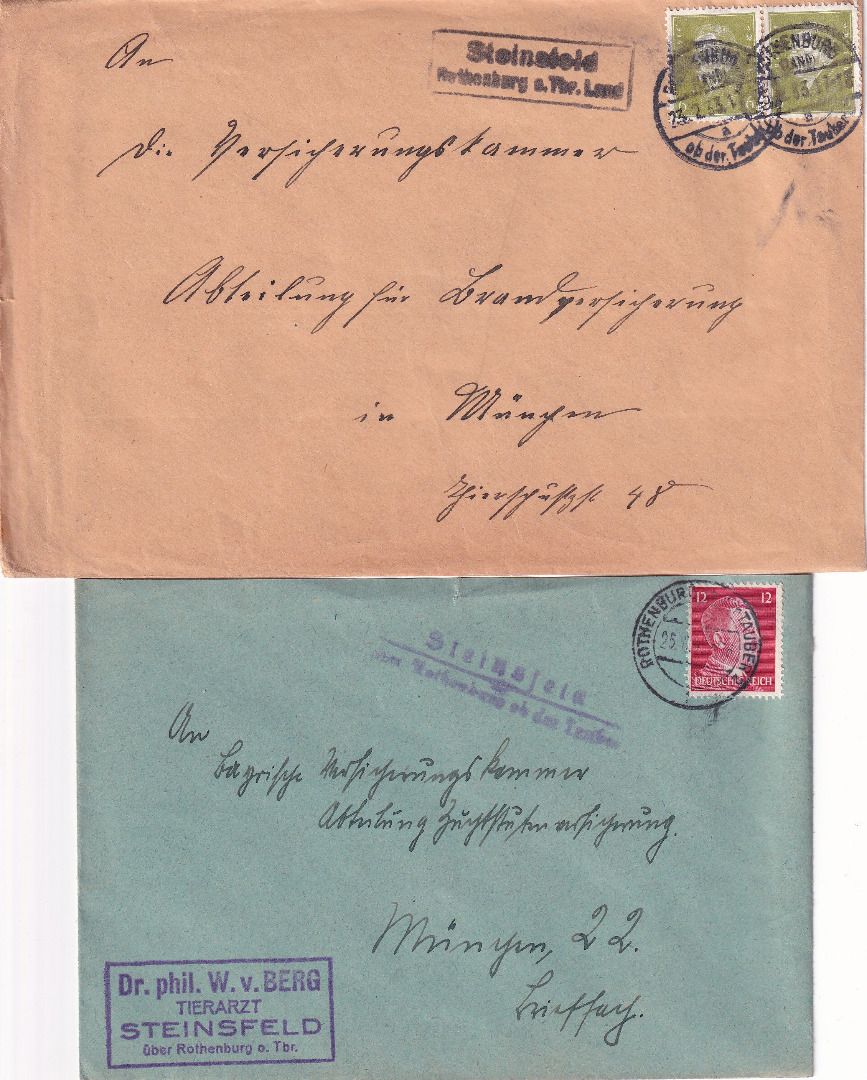 Steinsfeld
Rothenburg o. Tbr. Land
6
ROTHENBURG
LAND
a
ob der Tauber
ob der Tauber
An
Die Versicherungskammer
Abteilung für Brandversicherung
in München
48
12 12
DEUTSCHES REICH
ROTHENBURG TAUBER
Steinsfeld
über Rothenburg ob der Tauber
An
Bayrische Versicherungskammer
Abteilung Zuchtstutenversicherung.
München, 22.
Brieffach.
Dr. phil. W. v. BERG
TIERARZT
STEINSFELD
über Rothenburg o. Tbr.